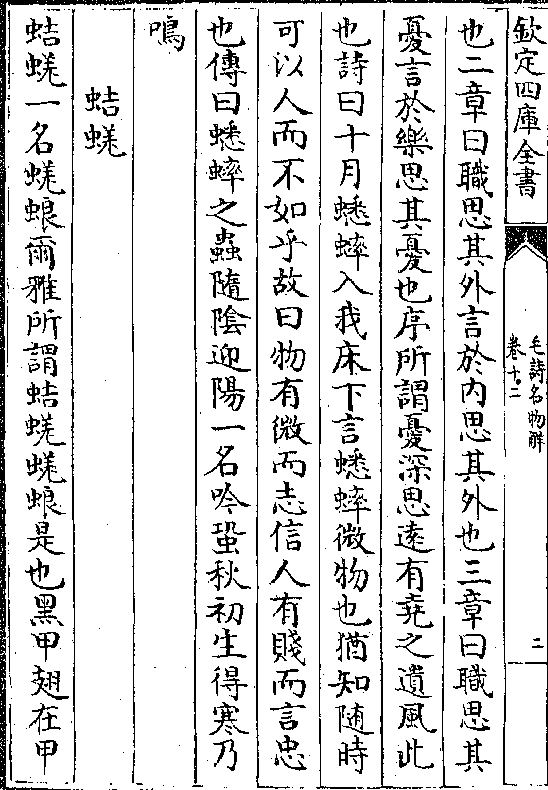 欽定四庫全書
毛詩名物解
卷十二
二
也二章曰職思其外言於内思其外也三章曰職思其
憂言於樂思其憂也序所謂憂深思遠有堯之遺風此
也詩曰十月蟋蟀入我床下言蟋蟀微物也猶知随時
可以人而不如乎故曰物有微而志信人有賤而言忠
也傳曰蟋蟀之蟲隨陰迎陽一名吟蛩秋初生得寒乃
鳴
蛣蜣
蛣蜣一名蜣蜋爾雅所謂蛣蜣蜣蜋是也黑甲翅在甲